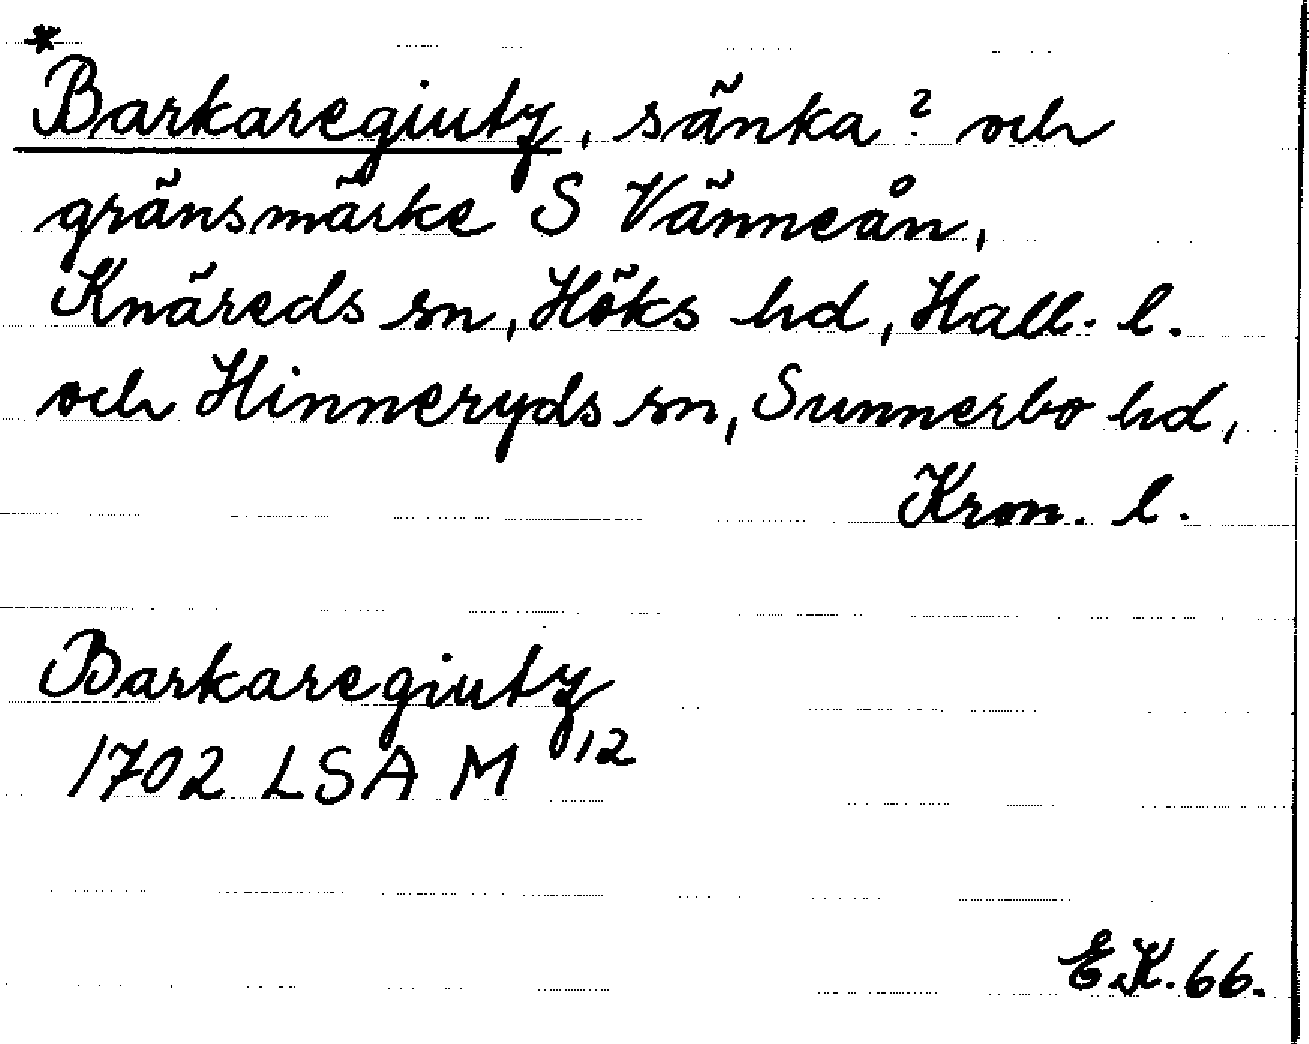 *
Barkaregiutz, sänka? och
gränsmärke S Vänneån,
Knäreds sn, Höks hd, Hall. l.
och Hinneryds sn, Sunnerbo hd,
Kron. l.
Barkaregiutz
1702 LSA M 12
E.K. 66.